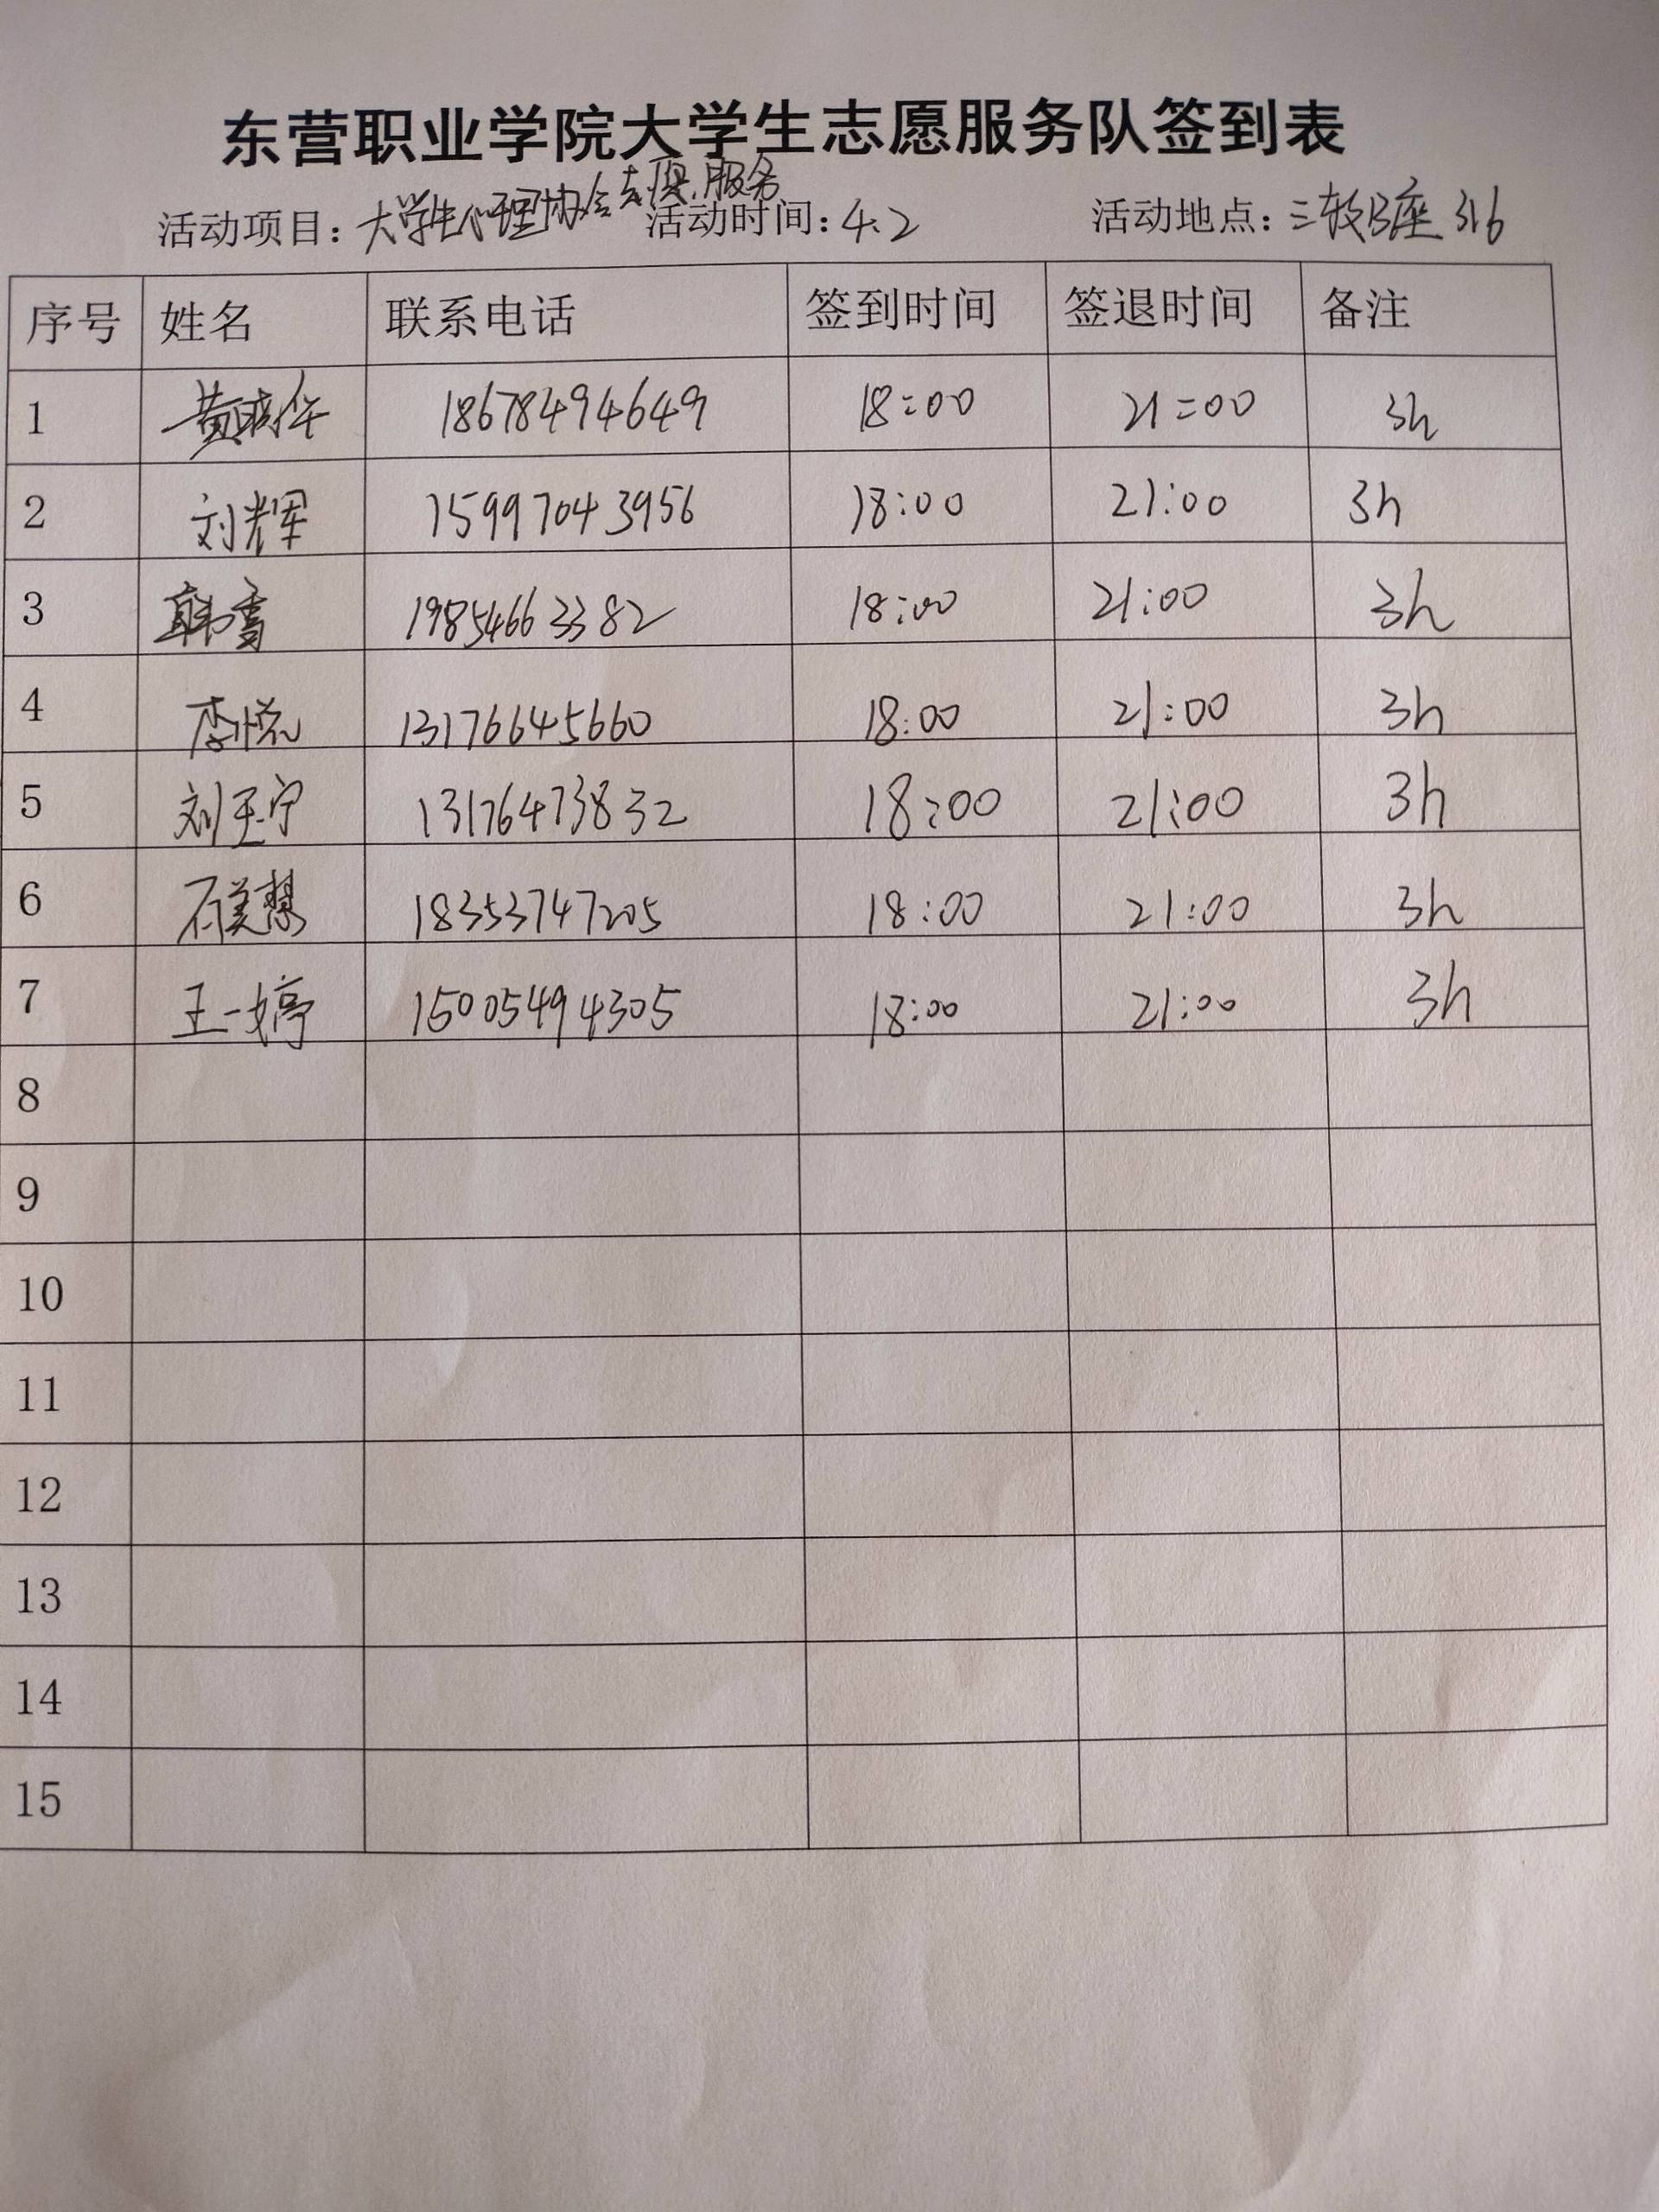 东营职业学院大学生志愿服务队签到表
活动项目：大学生心理协会志愿服务 活动时间：4.2 活动地点：三教B座316
序号 姓名 联系电话 签到时间 签退时间 备注
1 18678494649 18:00 21:00 3h
2 刘辉 15997043956 18:00 21:00 3h
3 韩雪 19854663382 18:00 21:00 3h
4 李悦 13176645660 18:00 21:00 3h
5 刘玉宁 13176473832 18:00 21:00 3h
6 石美慧 18353747205 18:00 21:00 3h
7 王一婷 15005494305 18:00 21:00 3h
8
9
10
11
12
13
14
15